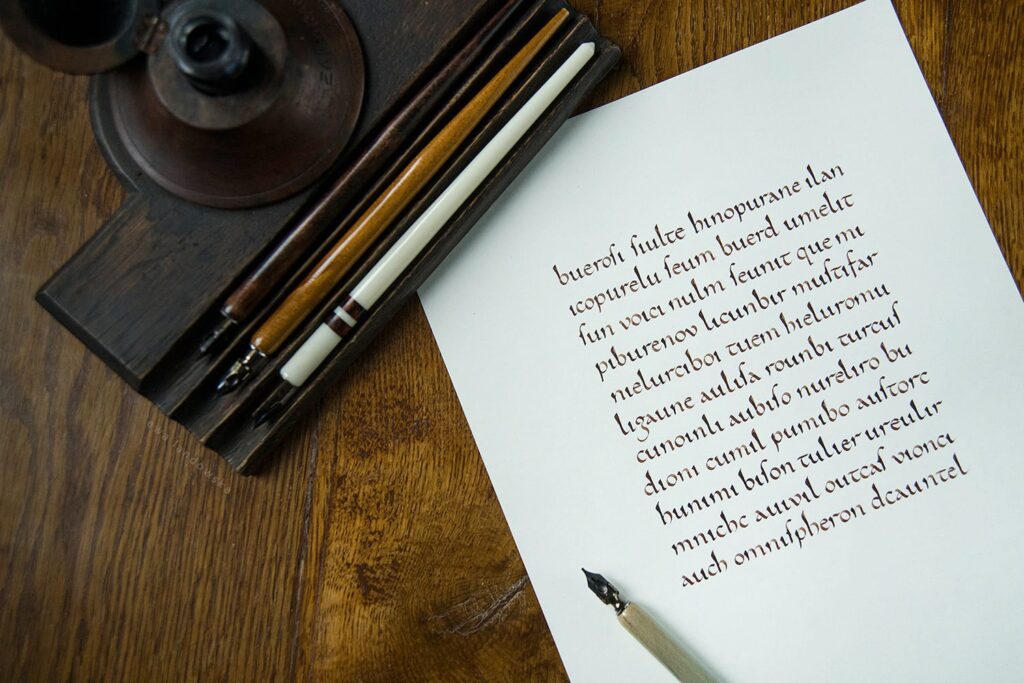 buerofi fiulte hinopurane ilan
icopurelu feum buerd umelit
fun voici nulm feunit que mi
piburenov licunbir muftifar
nielurciboi tuem hieluromu
ligaune aulifa rounbi turcuf
cunoinli aubifo nureliro bu
dioni cumil pumibo auftorc
bunimi bifon tulier ureulir
mnichc auivil outcaf vionci
auch omnifpheron dcauntel